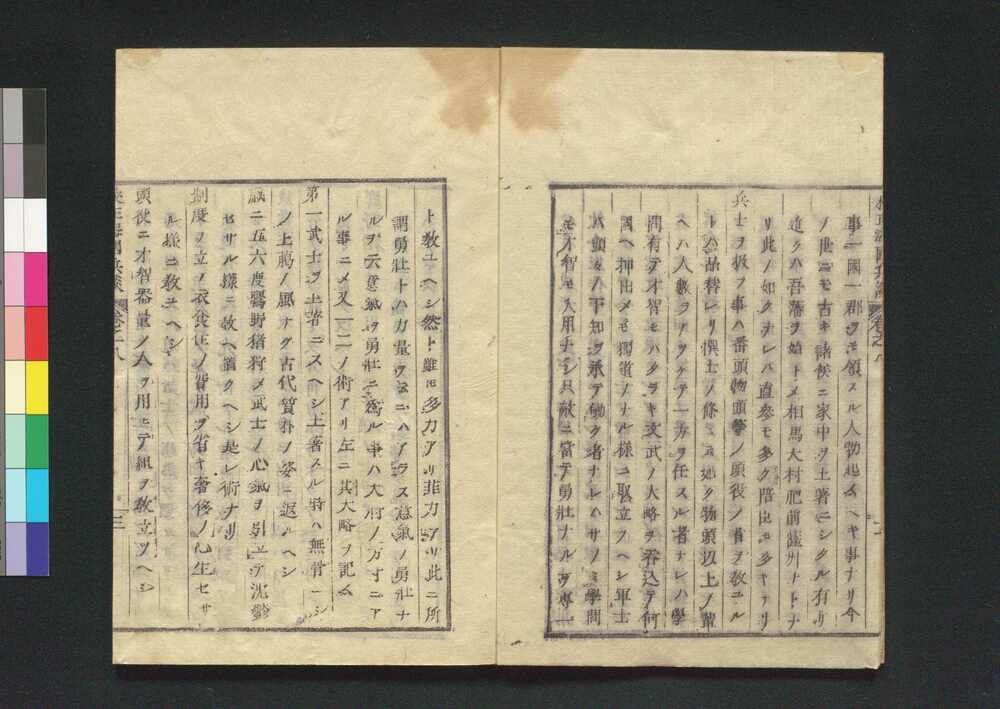 事一國一郡ヲモ領スル人勿起ムヘキ事ナリ今
ノ世ニモ古キ諸侯ニ家中ヲ土著ニシタル有リ
近クハ吾藩ヲ始トメ相馬大村肥前薩州トトナ
リ此ノ如クナレハ直参モ多ク陪臣モ多キナリ
兵士ヲ扱フ事ハ番頭物頭等ノ頭役ノ者ヲ教ユル
トハ品替レリ慎士ノ條ニモ如ク物頭以上ノ軰
ヘハ人數ヲアツケテ一方ヲ任スル者ナレハ學
問有テ才智モハタラキ文武ノ大略ヲ呑込テ何
國ヘ押出メモ獨省ノナル様ニ取立フヘシ軍士
ハ頭々ノ下知ヲ承テ働ク者ナレハサノミ學問
モ才智モ入用ナシ只敵ニ當テ勇壯ナルヲ專一
ト教ユヘシ然ト雖𪜈多力アリ菲力アリ此ニ所
謂勇壯トハ力量ヲ云ニハアラス意氣ノ勇壯ナ
ルヲ云意氣ヲ勇壯ニ為ル事ハ大將ノ方寸ニア
ル事ニメ又一二ノ術アリ左ニ其大略ヲ記ム
第一武士ヲ土著ニスヘシ土著スル時ハ無骨一シ
ノ上﨟ノ風ナク古代質朴ノ姿ニ返ルヘシ
扨ニ五六度鷹野猪狩メ武士ノ心氣ヲ引立テ沈鬱
セサル様ニ教ヘ置クヘシ是レ術ナリ
制度ヲ立ノ衣食住ノ費用ヲ省キ奢侈ノ心生セサ
ル様ニ教ユヘシ
頭役ニ才智器量ノ人ヲ用ヒテ組ヲ教立ツヘシ